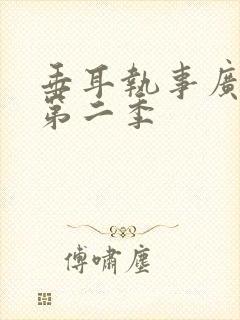 垂耳執事廣
第二季
傅嘯塵